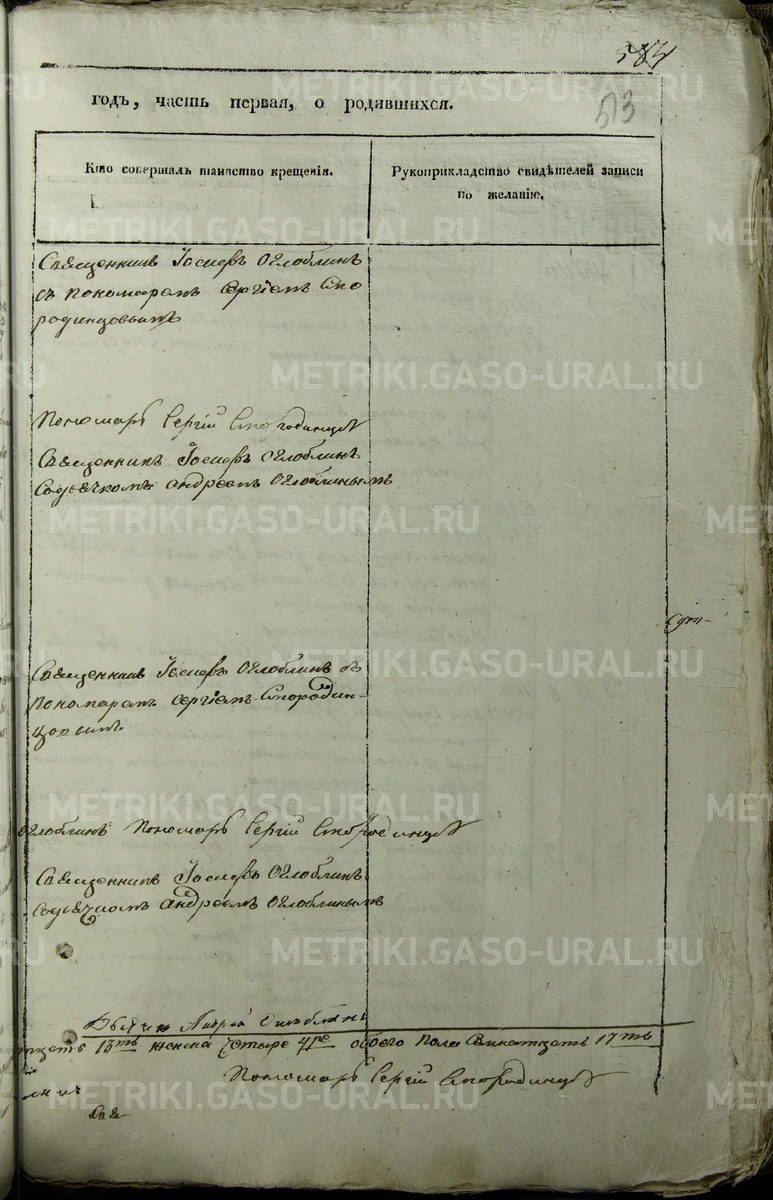 583
годъ, часть первая, о родившихся.
513
Кто совершалъ таинство крещенія.
Рукоприкладство свидѣтелей записи
по желанію.
Священникъ Іосифъ Оглоблинъ
съ пономаремъ Сергіемъ Сто
родинцовымъ
Пономарь Сергій Стородинцов
Священникъ Іосифъ Оглоблинъ
Содьячкомъ Андреемъ Оглоблинымъ
Священникъ Іосифъ Оглоблинъ съ
Пономаремъ Сергіемъ Стородин-
цовымъ
Оглоблинъ Пономарь Сергій Стородинцов
Священникъ Іосифъ Оглоблинъ
Содьячкомъ Андреемъ Оглоблинымъ
Дьячик Андрей Оглоблинъ
13ть женска четыре 4ре обоего пола семнатцеть 17ть
Пономарь Сергій Стородинцов
Свя-
METRIKI.GASO-URAL.RU